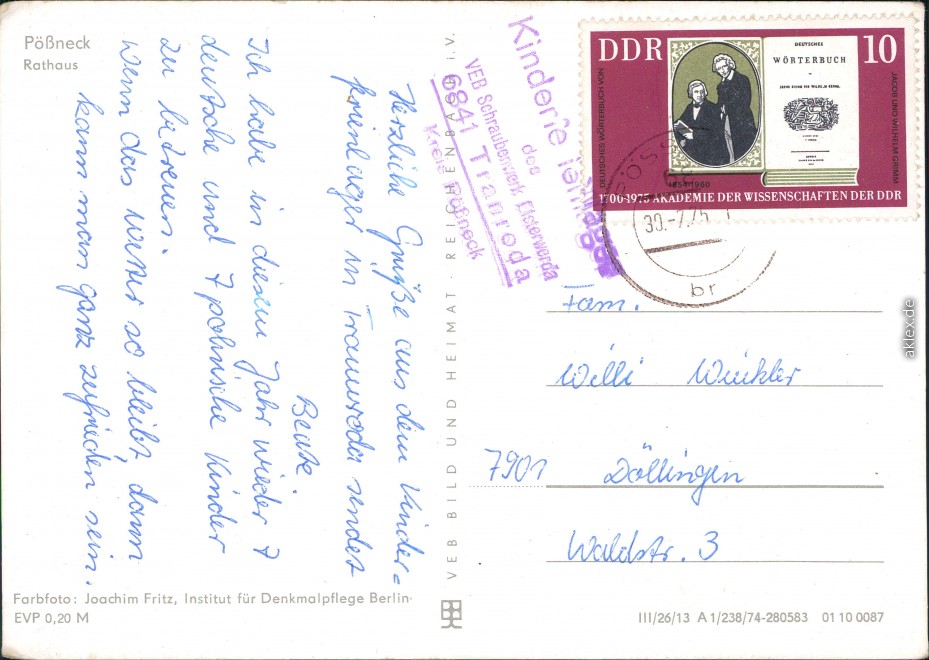 Pößneck
Rathaus
Herzliche Grüße aus dem Kinder=
ferienlager in Trannroda sendet
Beate.
Ich habe in diesem Jahr wieder 7
deutsche und 7 polnische Kinder
zu betreuen.
Wenn das Wetter so bleibt, dann
kann man ganz zufrieden sein.
Farbfoto: Joachim Fritz, Institut für Denkmalpflege Berlin
EVP 0,20 M
VEB BILD UND HEIMAT · REICHENBACH i. V.
Kinderferienlager
des
VEB Schraubenwerk Elsterwerda
6841 Tranroda
Kreis Pößneck
DDR 10
DEUTSCHES WÖRTERBUCH VON
JACOB UND WILHELM GRIMM
DEUTSCHES
WÖRTERBUCH
1854-1960
1700-1975 AKADEMIE DER WISSENSCHAFTEN DER DDR
br
Fam.
Willi Winkler
7901 Döllingen
Waldstr. 3
III/26/13 A 1/238/74-280583 01 10 0087
aklex.de